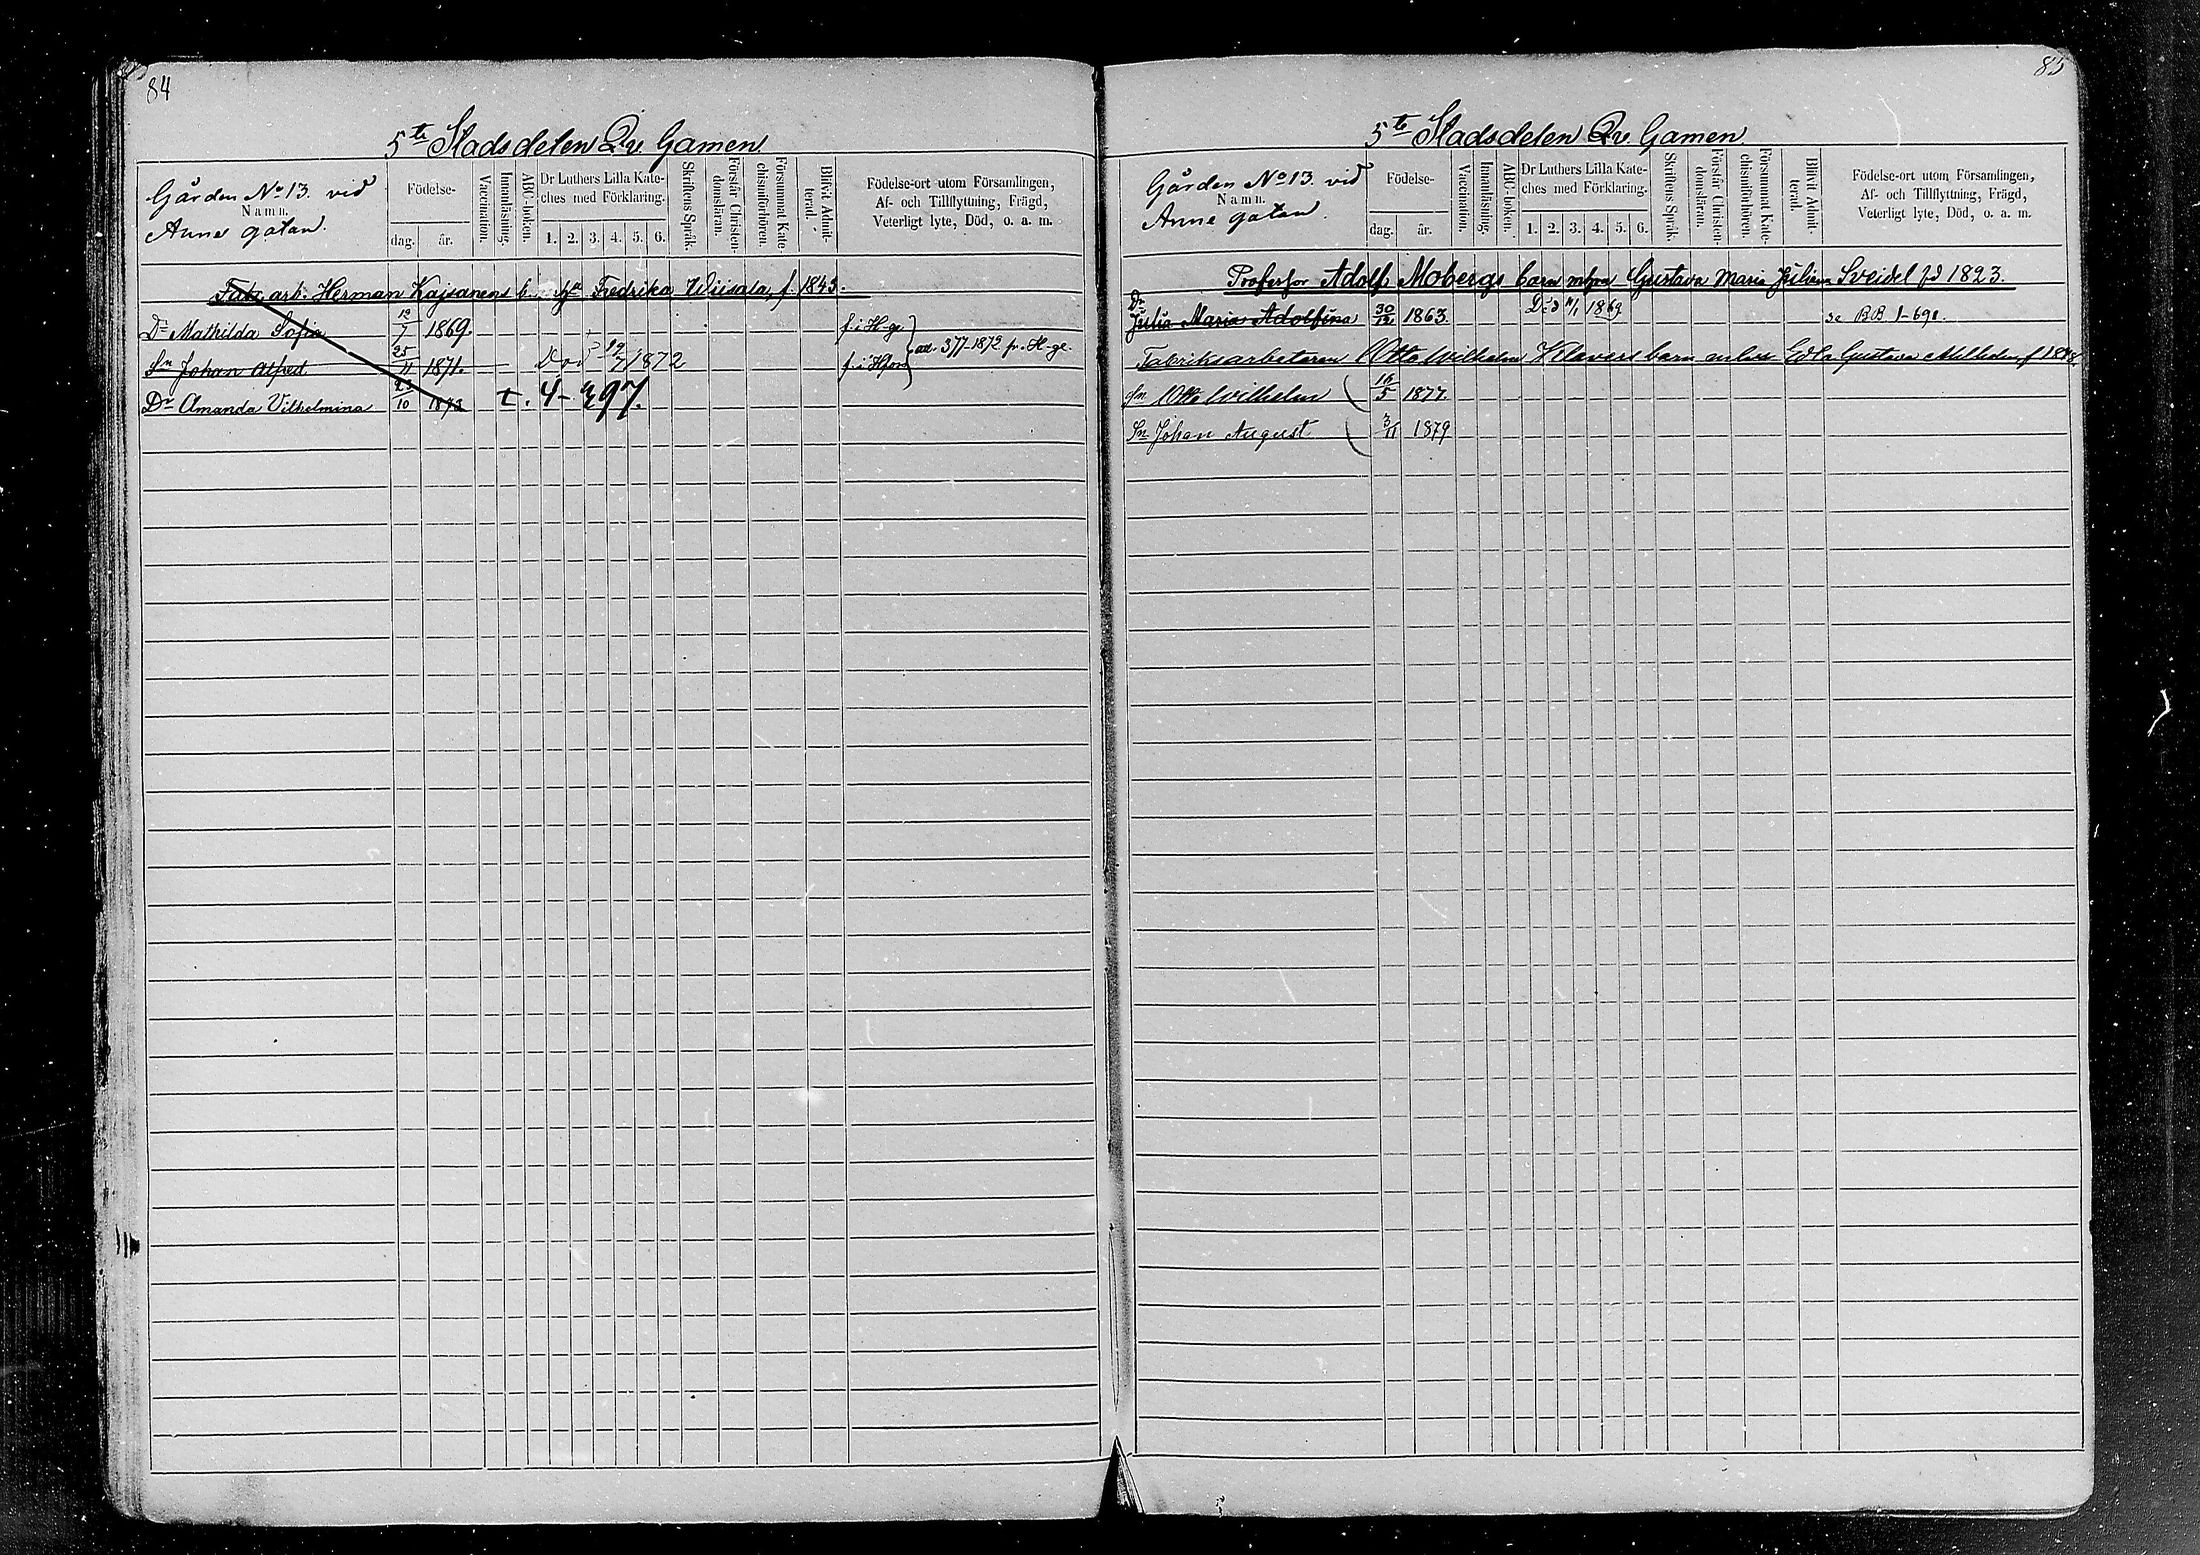 84
5te Stadsdelen Qv. Gamen.
Gården No 13. vid
Namn.
Anne gatan.
Födelse-
dag.
år.
Vaccination.
Innanläsning.
ABC-boken.
Dr Luthers Lilla Kate-
ches med Förklaring.
1. 2. 3. 4. 5. 6.
Skriftens Språk.
Förstår Christen-
domsläran.
Försummat Kate-
chismiförhören.
Blifvit Admit-
terad.
Födelse-ort utom Församlingen,
Af- och Tillflyttning, Frägd,
Veterligt lyte, Död, o. a. m.
arb. Herman Kajsanens b. Fredrika Wiisala, f. 1843.
Dr Mathilda Sofia 12/7 1869. f. i H-ge
ad. 377-1872 fr. H-ge.
Sn Johan Alfred 25/11 1871. Död 19/7 1872 f. i
Dr Amanda Vilhelmina 23/10 1873 t. 4-397.
85
5te Stadsdelen Qv. Gamen.
Gården No 13. vid
Namn.
Anne gatan.
Födelse-
dag.
år.
Vaccination.
Innanläsning.
ABC-boken.
Dr Luthers Lilla Kate-
ches med Förklaring.
1. 2. 3. 4. 5. 6.
Skriftens Språk.
Förstår Christen-
domsläran.
Försummat Kate-
chismiförhören.
Blifvit Admit-
terad.
Födelse-ort utom Församlingen,
Af- och Tillflyttning, Frägd,
Veterligt lyte, Död, o. a. m.
Professor Adolf Mobergs barn Gustava Maria Juliana Sveidel fd 1823.
Dr Julia Maria Adolfina 30/12 1863. Död 11/1 1869 se BB 1-691.
Fabriksarbetaren Otto Wilhelm Klavers barn Edla Gustava f 1848.
Sn Otto Wilhelm 16/5 1877.
Sn Johan August 3/11 1879